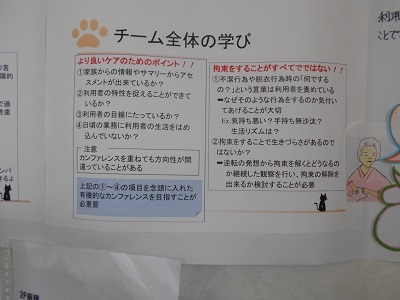 チーム全体の学び
より良いケアのためのポイント！！
①家族からの情報やサマリーからアセ
スメントが出来ているか？
②利用者の特性を捉えることができて
いるか？
③利用者の目線にたっているか？
④日頃の業務に利用者の生活をはめ
込んでいないか？
注意
カンファレンスを重ねても方向性が間
違っていることがある
上記の①～④の項目を念頭に入れた
有機的なカンファレンスを目指すことが
必重要
拘束をすることがすべてではない！！
①不潔行為や脱衣行為時の「何でする
の？」という言葉は利用者を責めている
⇒なぜそのような行為をするのか気付い
てあげることが大切
Ex.気持ち悪い？手持ち無沙汰？
生活リズムは？
②拘束をすることで生きづらさがあるので
はないか？
⇒逆転の発想から拘束を解くとどうなるの
か継続した観察を行い、拘束の解除を
出来るか検討することが必要
利用
ことで